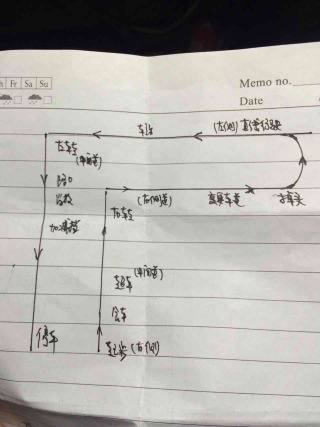 h Fr Sa Su
Memo no.
Date
(左侧) 直线行驶
左转
(中间道)
路口
学校
加减挡
停车
右转
(右侧道)
变更车道
掉头
超车 (中间道)
会车
起步 (右侧)